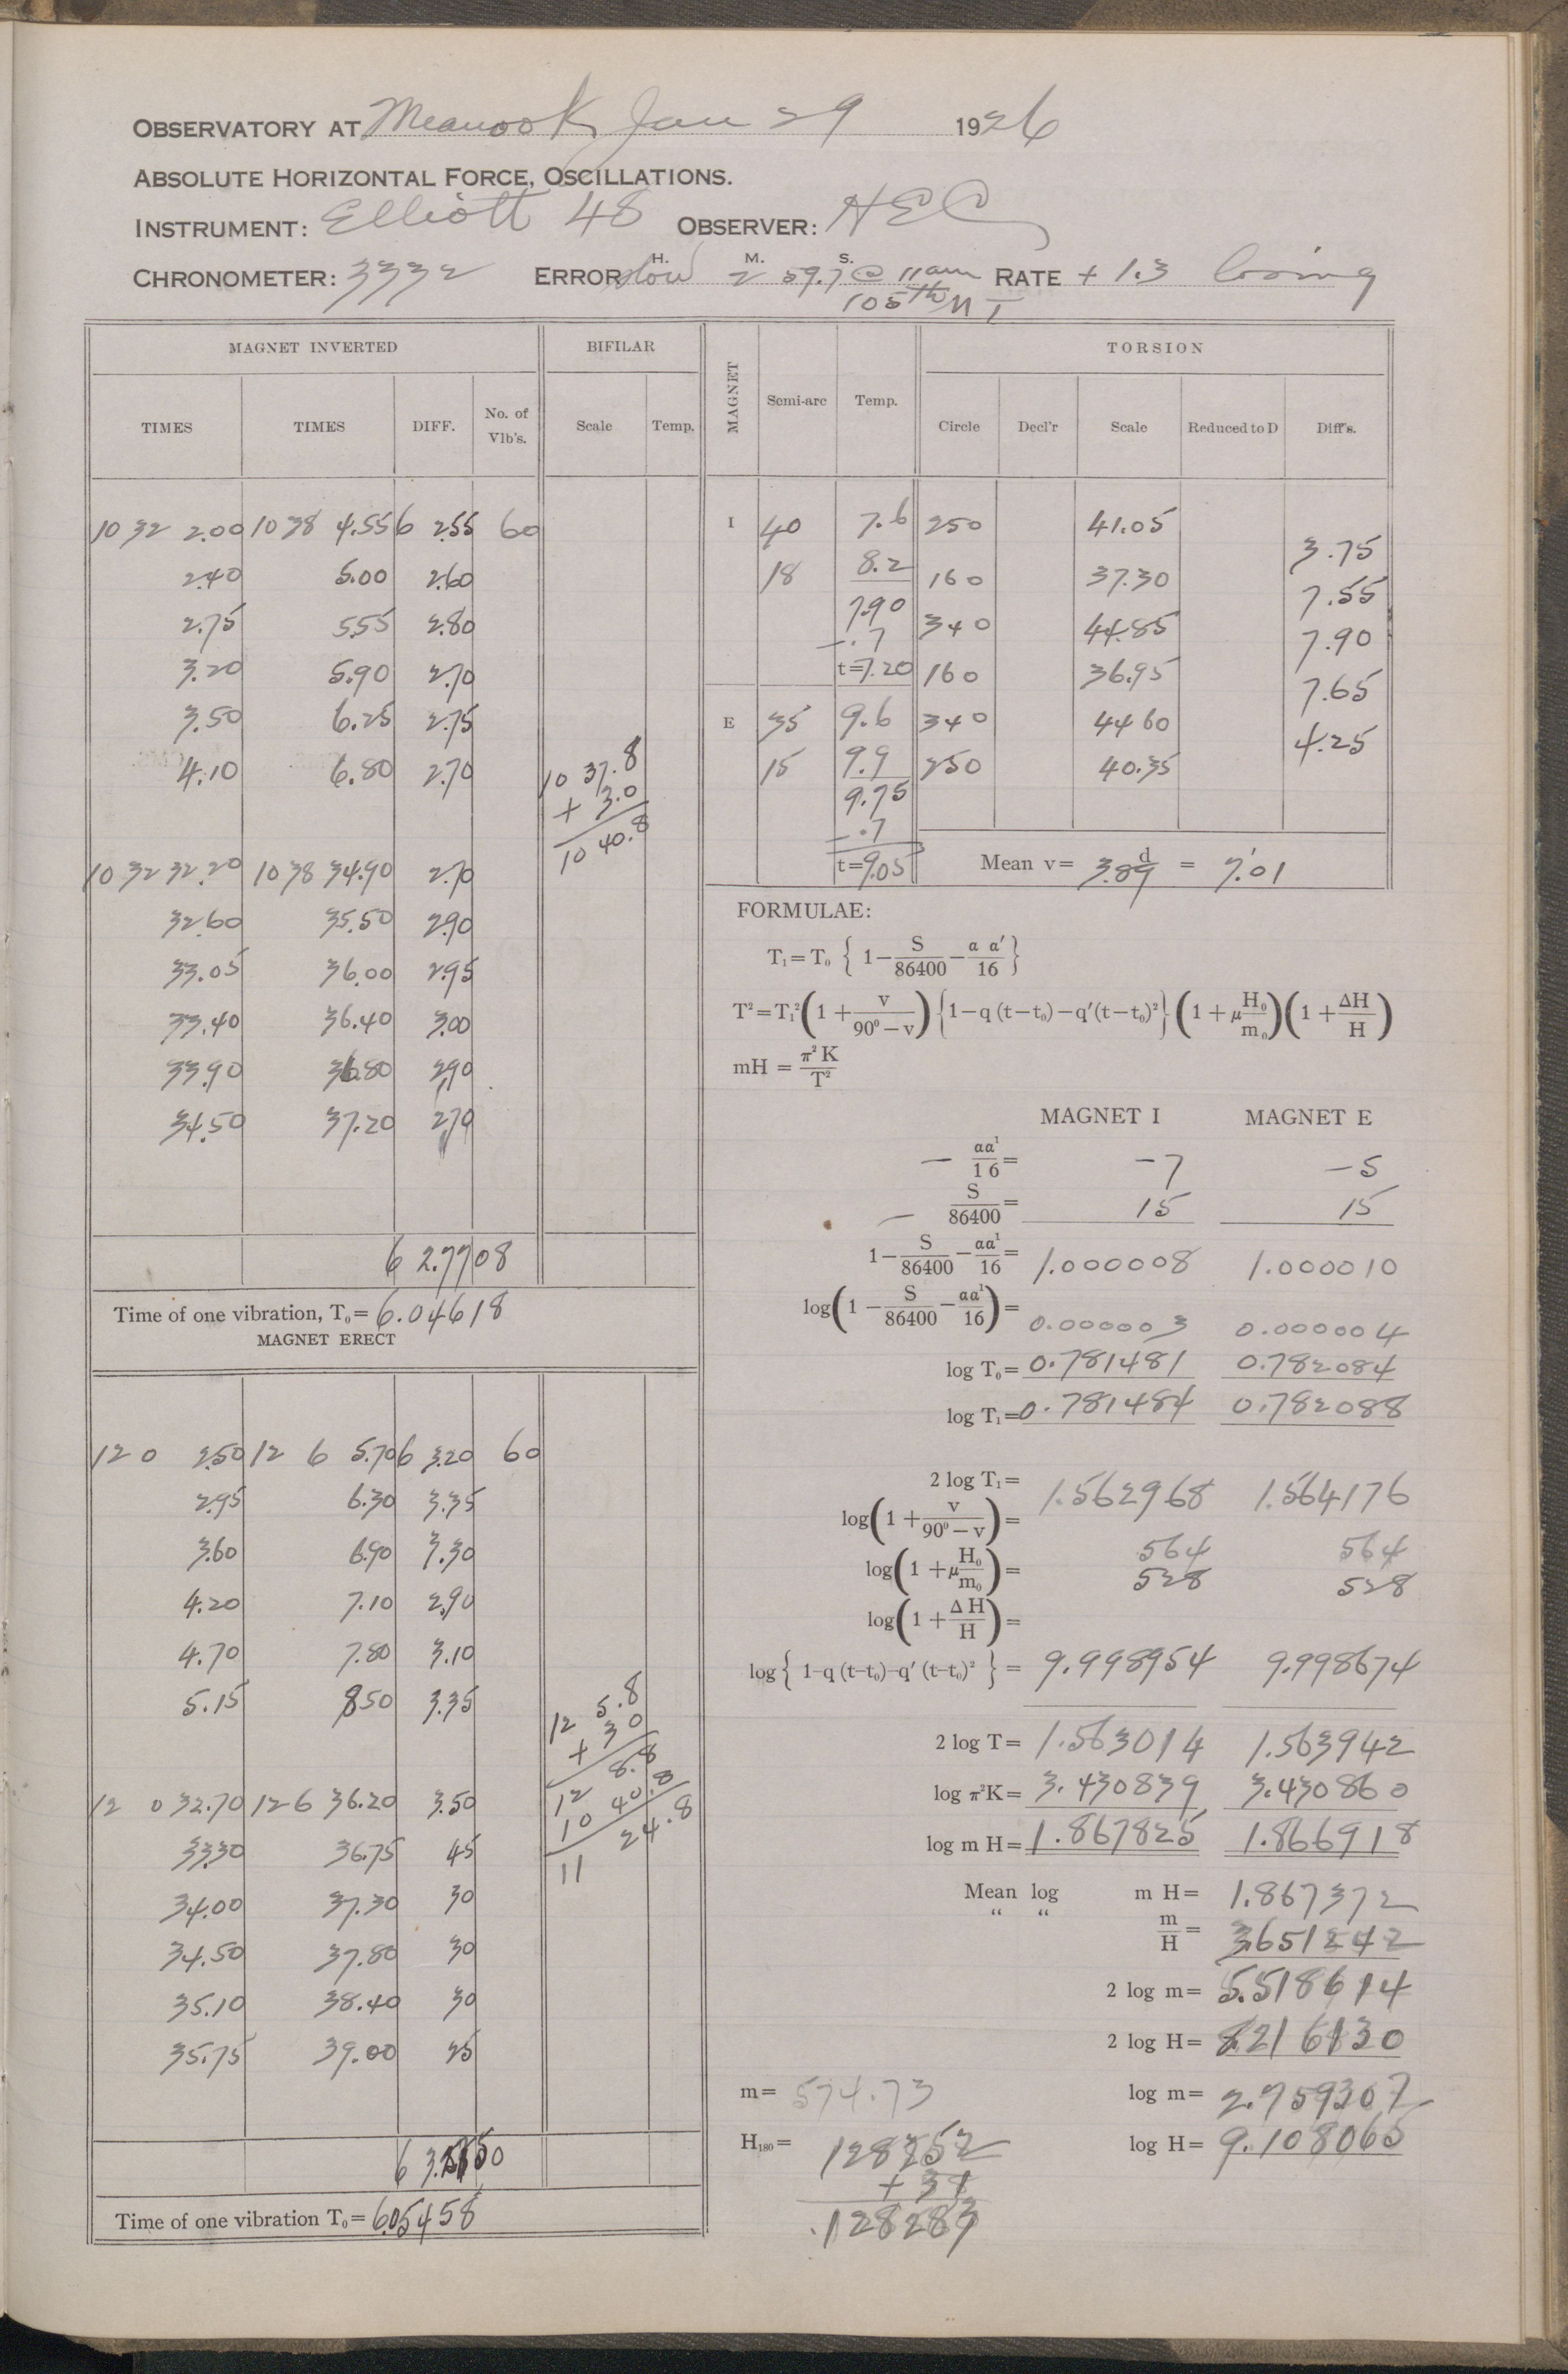 OBSERVATORY AT Meanook Jan 29 1926
ABSOLUTE HORIZONTAL FORCE, OSCILLATIONS.
INSTRUMENT: Elliott 48 OBSERVER: HEC
H. M. S.
CHRONOMETER: 3332 ERROR slow 2 59.7 @ 11am RATE + 1.3 losing
105th MT
MAGNET INVERTED
TIMES TIMES DIFF. No. of Vib's.
BIFILAR
Scale Temp.
10 32 2.00 10 38 4.55 6 2.55 60
2.40 5.00 2.60
2.75 5.55 2.80
3.20 5.90 2.70
3.50 6.25 2.75
4.10 6.80 2.70
10 37.8
+ 3.0
10 40.8
10 32 32.20 10 38 34.90 2.70
32.60 35.50 2.90
33.05 36.00 2.95
33.40 36.40 3.00
33.90 36.80 2.90
34.50 37.20 2.70
6 2.7708
Time of one vibration, T₀= 6.04618
MAGNET ERECT
12 0 2.50 12 6 5.70 6 3.20 60
2.95 6.30 3.35
3.60 6.90 3.30
4.20 7.10 2.90
4.70 7.80 3.10
5.15 8.50 3.35
12 5.8
+ 3 0
12 8.8
10 40.8
11 24.8
12 0 32.70 12 6 36.20 3.50
33.30 36.75 45
34.00 37.30 30
34.50 37.80 30
35.10 38.40 30
35.75 39.00 25
Time of one vibration T₀= 6.05458
MAGNET Semi-arc Temp.
TORSION
Circle Decl'r Scale Reduced to D Diff's.
I 40 7.6 250 41.05
3.75
18 8.2 160 37.30
7.55
7.90 340 44.85
7.90
-.7
t=7.20 160 36.95
7.65
E 35 9.6 340 44 60
4.25
15 9.9 250 40.35
9.75
-.7
t=9.05
Mean v= 3.89 d = 7.'01
FORMULAE:
T₁=T₀ { 1− S/86400 − α α′/16 }
T²=T₁²(1+ v/90°−v){1−q (t−t₀)−q′(t−t₀)²}(1+μ H₀/m₀)(1+ ΔH/H)
mH = π²K/T²
MAGNET I MAGNET E
− αα¹/16= -7 -5
− S/86400= 15 15
1− S/86400 − αα¹/16= 1.000008 1.000010
log(1− S/86400 − αα¹/16)= 0.000003 0.000004
log T₀= 0.781481 0.782084
log T₁= 0.781484 0.782088
2 log T₁= 1.562968 1.564176
log(1+ v/90°−v)= 564 564
log(1+μ H₀/m₀)= 528 528
log(1+ ΔH/H)=
log{ 1−q (t−t₀)−q′ (t−t₀)² } = 9.998954 9.998674
2 log T= 1.563014 1.563942
log π²K= 3.430839 3.430860
log m H= 1.867825 1.866918
Mean log m H= 1.867372
“ “ m/H = 3.651242
2 log m= 5.518614
2 log H= 8.216130
m= 574.73 log m= 2.759307
H₁₈₀= 128252 log H= 9.108065
+ 31
.128283